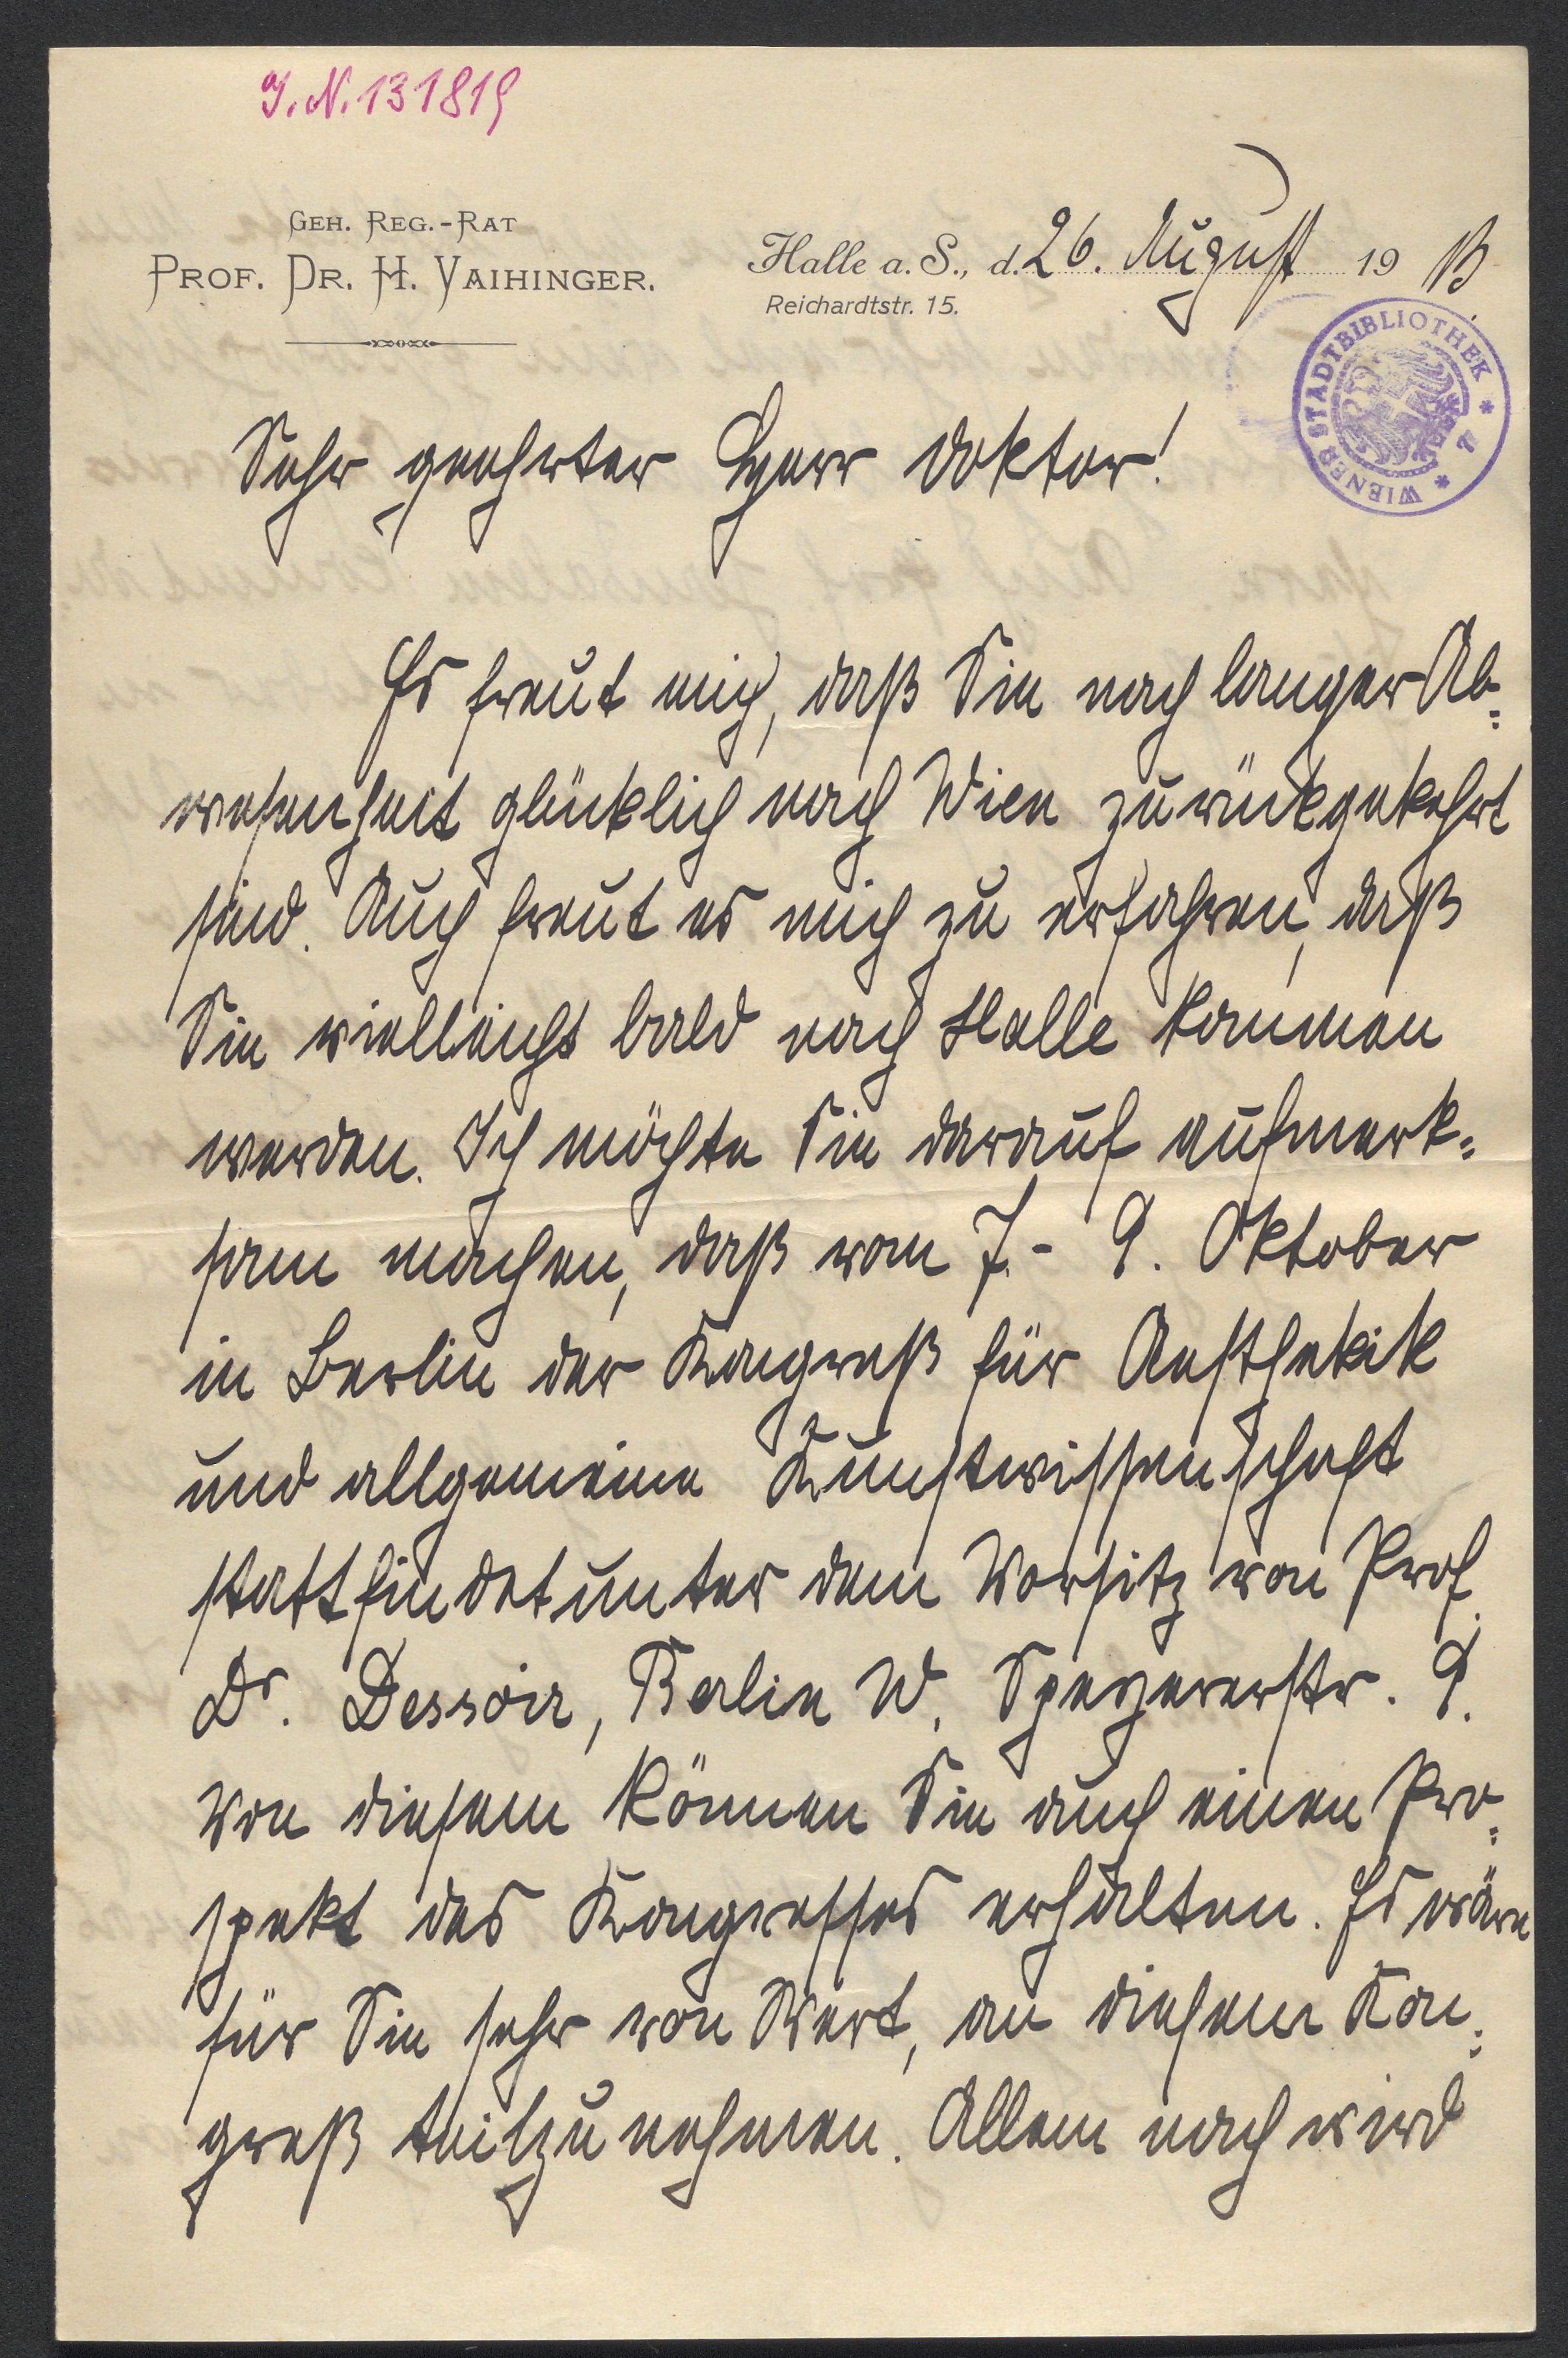 J. N. 131819
GEH. REG.-RAT
PROF. DR. H. VAIHINGER.
Halle a. S., d. 26. August 1913
Reichardtstr. 15.
WIENER STADTBIBLIOTHEK
Sehr geehrter Herr Doktor!
Es freut mich, daß Sie nach langer Ab-
wesenheit glücklich nach Wien zurückgekehrt
sind. Auch freut es mich zu erfahren, daß
Sie vielleicht bald nach Halle kommen
werden. Ich möchte Sie darauf aufmerk-
sam machen, daß vom 7.- 9. Oktober
in Berlin der Kongreß für Aesthetik
und allgemeine Kunstwissenschaft
stattfindet unter dem Vorsitz von Prof.
Dr. Dessoir, Berlin W, Speyererstr. 9.
Von diesem können Sie auch einen Pro-
spekt des Kongresses erhalten. Es wäre
für Sie sehr von Wert, an diesem Kon-
greß teilzunehmen. Allem nach wird